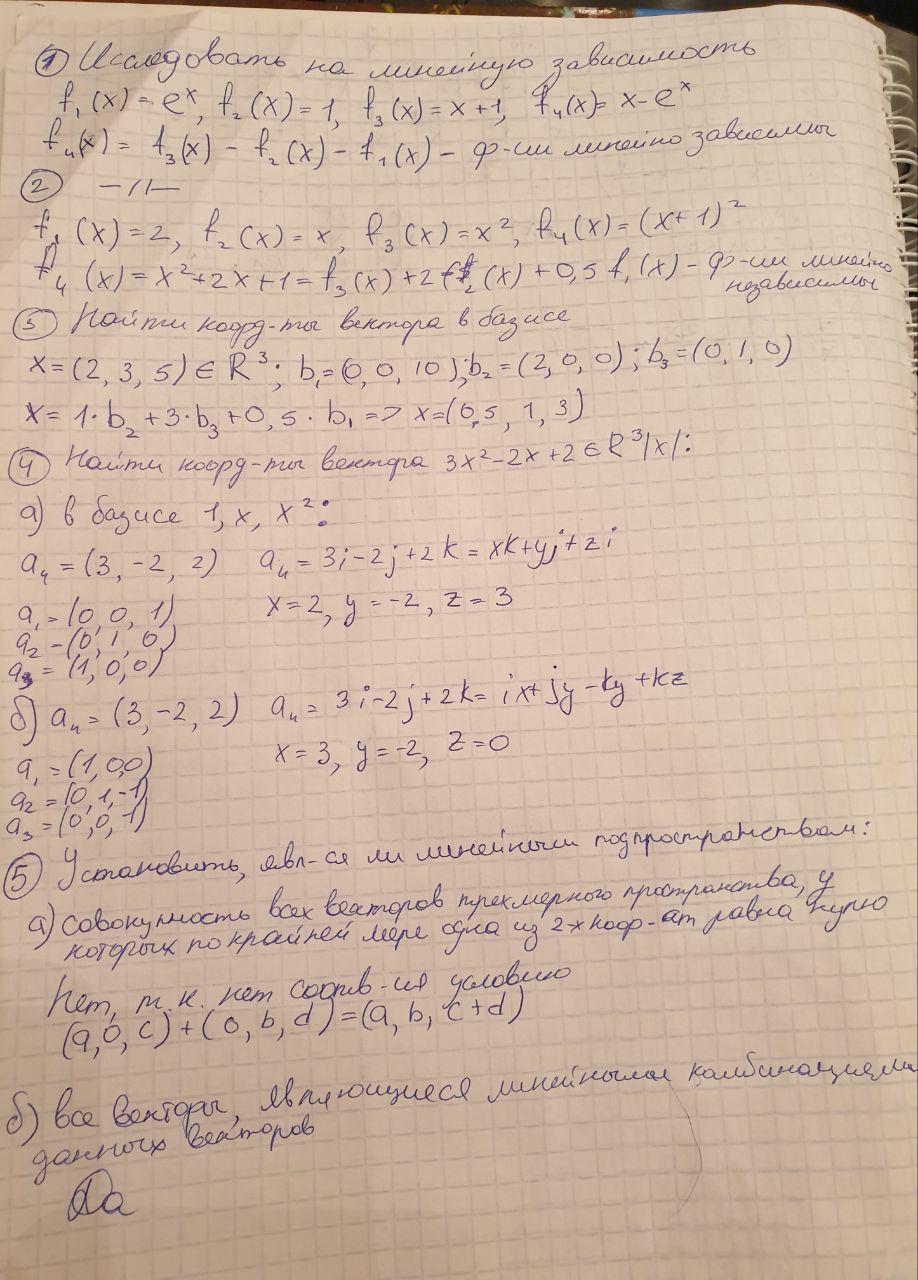 ① Исследовать на линейную зависимость
f₁(x) = eˣ, f₂(x) = 1, f₃(x) = x+1, f₄(x) = x-eˣ
f₄(x) = f₃(x) - f₂(x) - f₁(x) - ф-ии линейно зависимы
② —//—
f₁(x) = 2, f₂(x) = x, f₃(x) = x², f₄(x) = (x+1)²
f₄(x) = x²+2x+1 = f₃(x) + 2f₂(x) + 0,5 f₁(x) - ф-ии линейно
независимы
③ Найти коорд-ты вектора в базисе
x = (2, 3, 5) ∈ R³; b₁ = (0, 0, 10); b₂ = (2, 0, 0); b₃ = (0, 1, 0)
x = 1·b₂ + 3·b₃ + 0,5·b₁ => x = (0,5, 1, 3)
④ Найти коорд-ты вектора 3x²-2x+2 ∈ R³|x|:
а) в базисе 1, x, x²:
a₄ = (3, -2, 2) a₄ = 3i-2j+2k = xk+yj+zi
a₁ = (0, 0, 1) x=2, y=-2, z=3
a₂ = (0, 1, 0)
a₃ = (1, 0, 0)
б) a₄ = (3, -2, 2) a₄ = 3i-2j+2k = ix+jy-ky+kz
a₁ = (1, 0,0) x=3, y=-2, z=0
a₂ = (0, 1, -1)
a₃ = (0, 0, 1)
⑤ Установить, явл-ся ли линейным подпространством:
а) совокупность всех векторов трехмерного пространства, у
которых по крайней мере одна из 2х коор-ат равна нулю
Нет, т.к. нет соотв-ия условию
(a, 0, c) + (0, b, d) = (a, b, c+d)
б) все векторы, являющиеся линейными комбинациями
данных векторов
Да